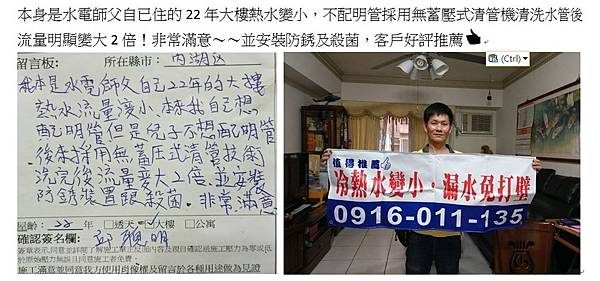 本身是水電師父自已住的 22 年大樓熱水變小，不配明管採用無蓄壓式清管機清洗水管後
流量明顯變大 2 倍！非常滿意～～並安裝防銹及殺菌，客戶好評推薦
(Ctrl)
留言板: 所在縣市: 內湖区
我本是水電師父自己22年的大樓
熱水流量變小,本來我自己想
配明管但是兒子不想配明管
後來採用無蓄压式清管技術
洗完後流量变大2倍.並安裝
防銹裝置跟殺菌.非常滿意
屋齡: 22 年 □透天 ☑大樓 □公寓
確認簽名欄: 邱聰明
施工滿意並同意我方使用肖像權及留言於各種用途做為見證
值得推薦
冷熱水變小，漏水免打壁
0916-011-135